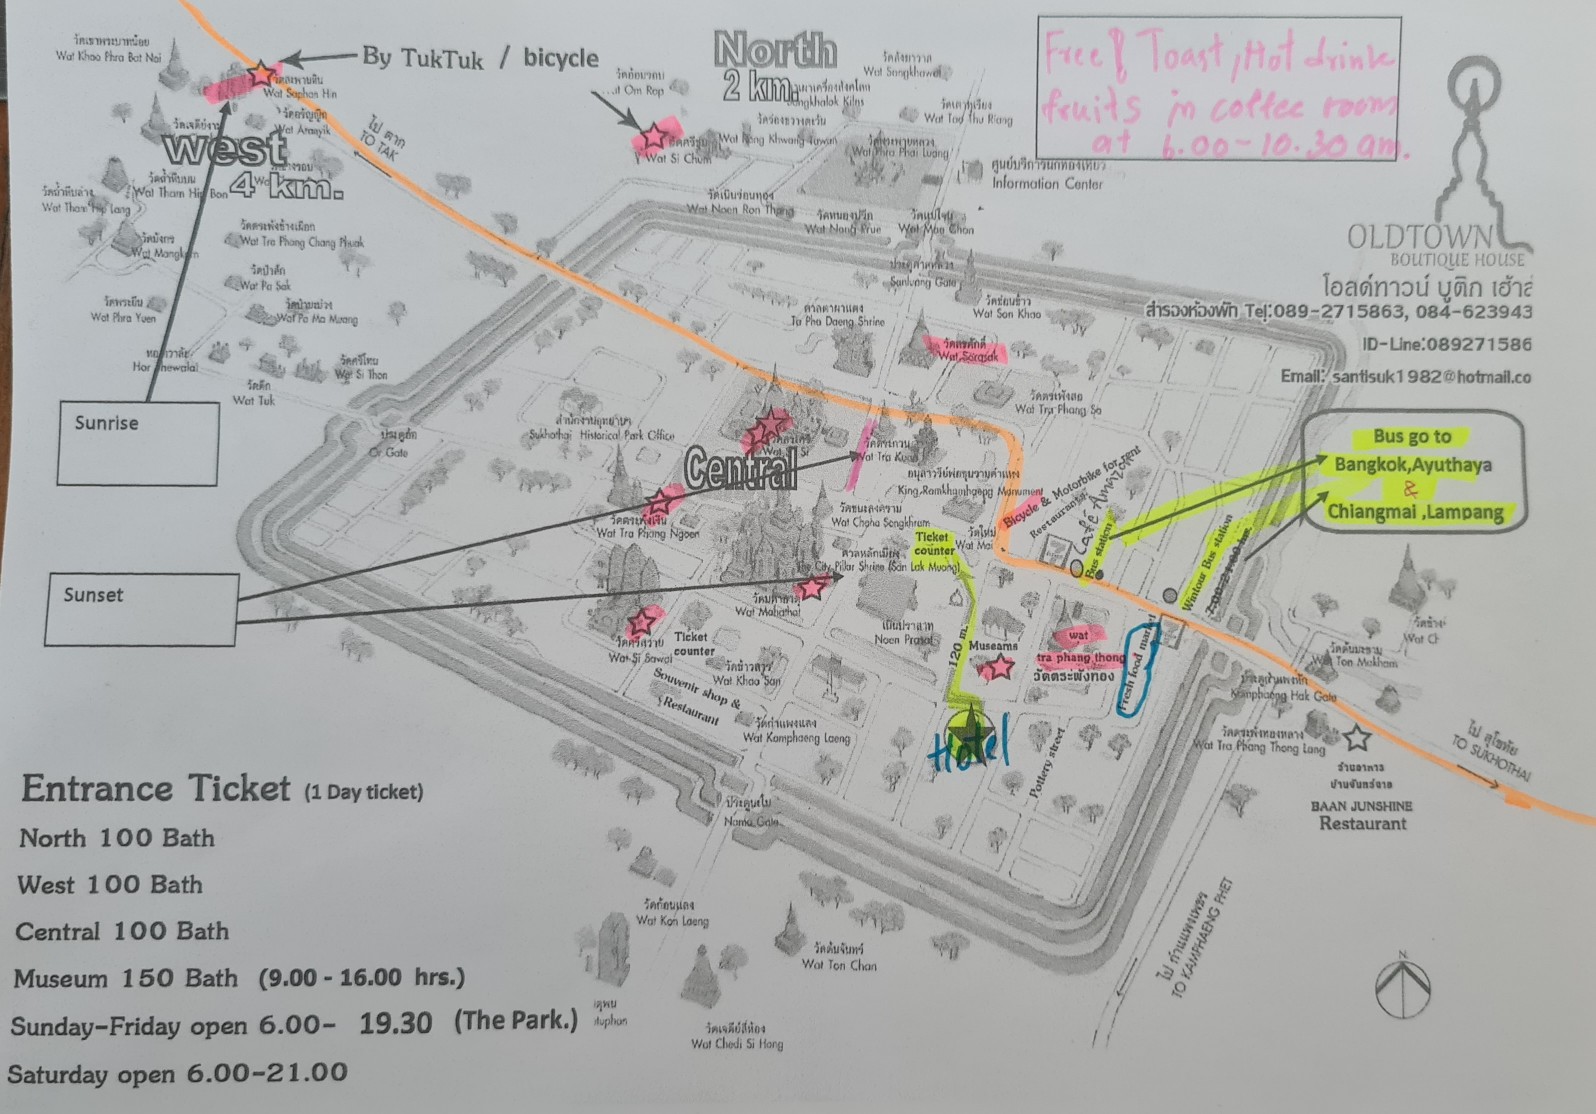 วัดเขาพระบาทน้อย
Wat Khao Phra Bat Noi
By TukTuk / bicycle
วัดสะพานหิน
Wat Saphan Hin
วัดอรัญญิก
Wat Aranyik
ไป ตาก
TO TAK
west
4 km.
วัดถ้ำหีบบน
Wat Tham Hip Bon
วัดถ้ำหีบล่าง
Wat Tham Hip Lang
วัดมังกร
Wat Mangkon
วัดตระพังช้างเผือก
Wat Tra Phang Chang Phuak
วัดป่าสัก
Wat Pa Sak
วัดป่ามะม่วง
Wat Pa Ma Muang
วัดพระยืน
Wat Phra Yuen
หอเทวาลัย
Hor Thewalai
วัดศรีโทน
Wat Si Thon
วัดตึก
Wat Tuk
North
2 km.
วัดอ้อมรอบ
Wat Om Rop
วัดศรีชุม
Wat Si Chum
วัดสังฆาวาส
Wat Sangkhawat
Sangkhalok Kilns
วัดเตาทุเรียง
Wat Tao Thu Riang
Wat Rong Khwang Tawan
วัดพระพายหลวง
Wat Phra Phai Luang
ศูนย์บริการนักท่องเที่ยว
Information Center
วัดเนินร่อนทอง
Wat Noen Ron Thong
วัดหนองปรือ
Wat Nong Prue
วัดแม่โจน
Wat Mae Chon
ประตูศาลหลวง
Sanluang Gate
วัดซ่อนข้าว
Wat Son Khao
ศาลตาผาแดง
Ta Pha Daeng Shrine
วัดสรศักดิ์
Wat Sorasak
วัดตระพังสอ
Wat Tra Phang So
Free! Toast, Hot drink
fruits in coffee room
at 6.00-10.30 am.
OLDTOWN
BOUTIQUE HOUSE
โอลด์ทาวน์ บูติก เฮ้าส์
สำรองห้องพัก Tel:089-2715863, 084-623943
ID-Line:089271586
Email: santisuk1982@hotmail.co
Bus go to
Bangkok,Ayuthaya
&
Chiangmai ,Lampang
Sunrise
Sunset
ประตูอ้อ
Or Gate
สำนักงานอุทยานฯ
Sukhothai Historical Park Office
วัดสระศรี
Wat Sa Si
Central
วัดตระกวน
Wat Tra Kuan
อนุสาวรีย์พ่อขุนรามคำแหง
King Ramkhamhaeng Monument
Bicycle & Motorbike for rent
Restaurants
Café Amazon
Bus station
Wintour Bus station
วัดตระพังเงิน
Wat Tra Phang Ngoen
วัดชนะสงคราม
Wat Chana Songkhram
วัดใหม่
Wat Mai
Ticket
counter
ศาลหลักเมือง
The City Pillar Shrine (San Lak Muang)
วัดมหาธาตุ
Wat Mahathat
เนินปราสาท
Noen Prasat
120 m.
Museams
wat
tra phang thong
วัดตระพังทอง
Fresh food market
วัดศรีสวาย
Wat Si Sawai
Ticket
counter
วัดข้าวสาร
Wat Khao San
Souvenir shop &
Restaurant
วัดกำแพงแลง
Wat Kamphaeng Laeng
Hotel
Pottery street
วัดช้าง
Wat Ch
วัดต้นมะขาม
Wat Ton Makham
ประตูกำแพงหัก
Kamphaeng Hak Gate
วัดตระพังทองหลาง
Wat Tra Phang Thong Lang
ไป สุโขทัย
TO SUKHOTHAI
ร้านอาหาร
บ้านจันทร์ฉาย
BAAN JUNSHINE
Restaurant
ประตูนะโม
Namo Gate
วัดก้อนแลง
Wat Kon Laeng
วัดต้นจันทร์
Wat Ton Chan
วัดเจดีย์สี่ห้อง
Wat Chedi Si Hong
ไป กำแพงเพชร
TO KAMPHAENG PHET
N
Entrance Ticket (1 Day ticket)
North 100 Bath
West 100 Bath
Central 100 Bath
Museum 150 Bath (9.00 - 16.00 hrs.)
Sunday-Friday open 6.00- 19.30 (The Park.)
Saturday open 6.00-21.00